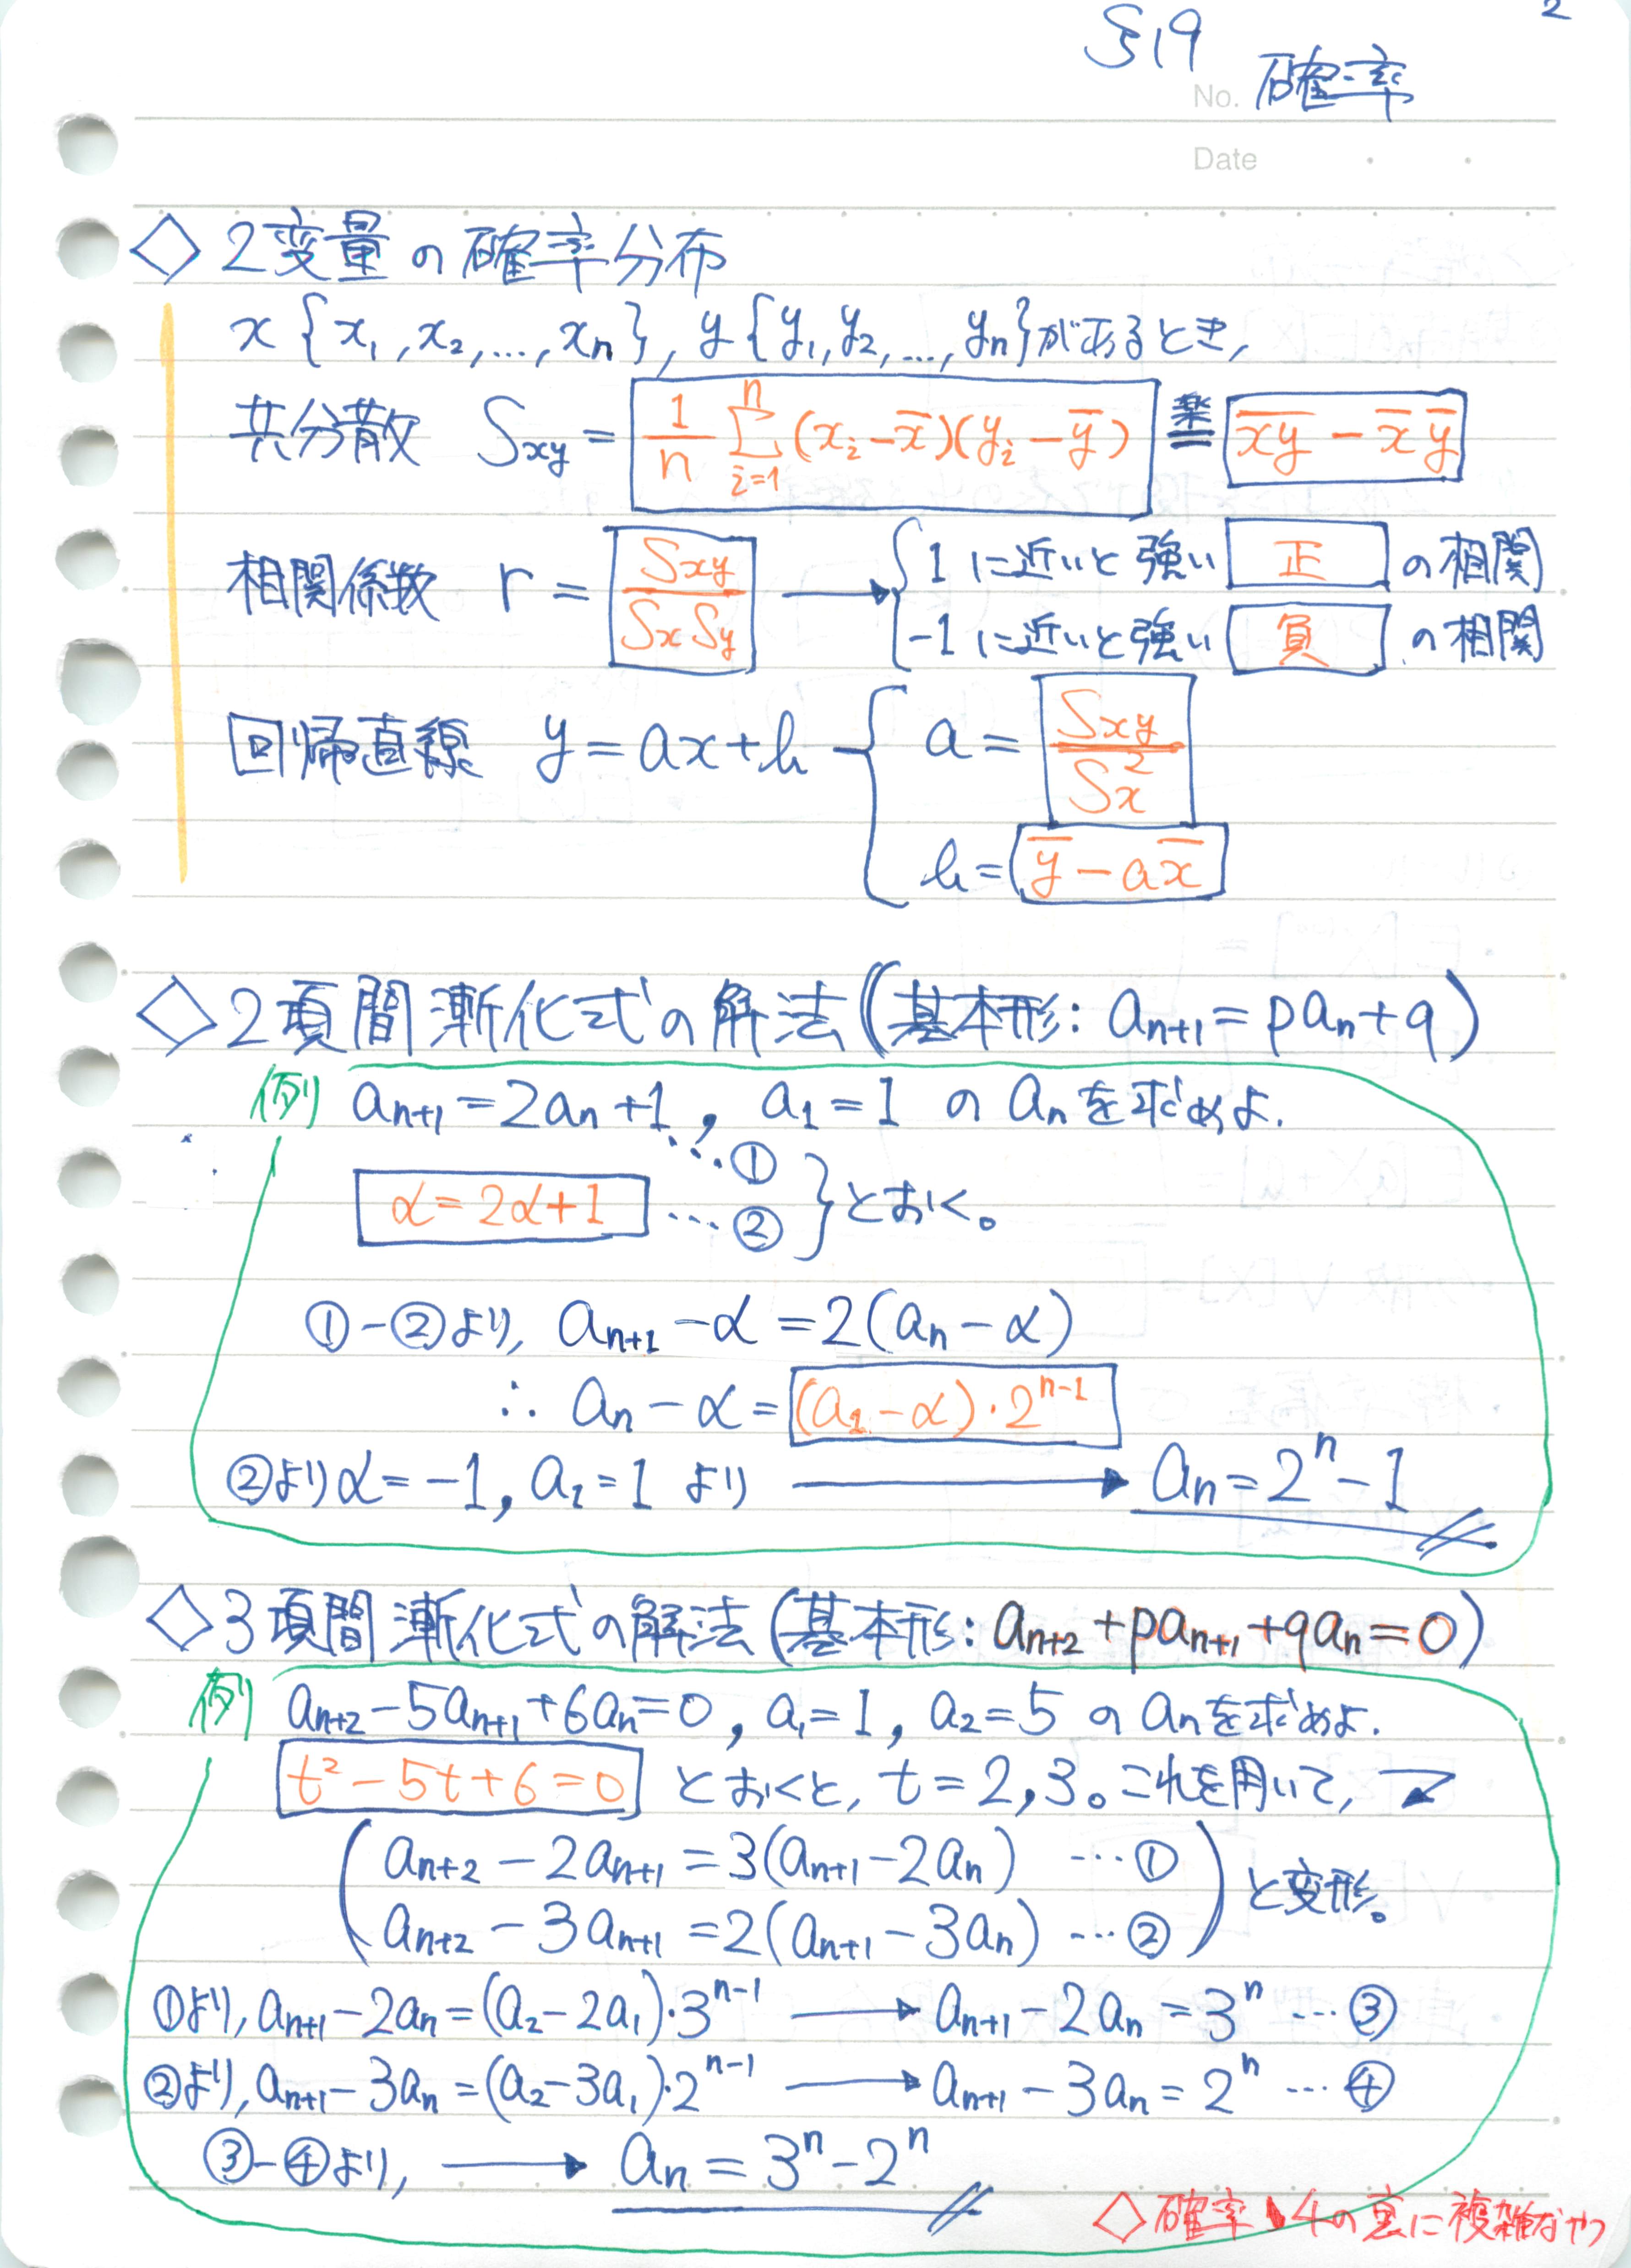 2
§19
No. 確率
Date
◇2変量の確率分布
x{x₁,x₂,…,xₙ}, y{y₁,y₂,…,yₙ}があるとき,
共分散 Sxy = 1/n Σ[i=1→n](xᵢ-x̄)(yᵢ-ȳ) 楽= x̄ȳ̄ - x̄ ȳ
相関係数 r = Sxy/(SxSy) → { 1に近いと強い 正 の相関
-1に近いと強い 負 の相関
回帰直線 y=ax+b { a = Sxy/Sx²
b = ȳ-ax̄
◇2項間漸化式の解法(基本形: aₙ₊₁=paₙ+q)
例 aₙ₊₁=2aₙ+1, a₁=1 の aₙを求めよ.
…①
α=2α+1 …② }とおく。
①-②より, aₙ₊₁-α=2(aₙ-α)
∴ aₙ-α=(a₁-α)・2ⁿ⁻¹
②よりα=-1, a₁=1 より → aₙ=2ⁿ-1
◇3項間漸化式の解法(基本形: aₙ₊₂+paₙ₊₁+qaₙ=0)
例 aₙ₊₂-5aₙ₊₁+6aₙ=0, a₁=1, a₂=5 の aₙを求めよ.
t²-5t+6=0 とおくと, t=2,3。これを用いて,
aₙ₊₂-2aₙ₊₁=3(aₙ₊₁-2aₙ) …①
aₙ₊₂-3aₙ₊₁=2(aₙ₊₁-3aₙ) …② と変形。
①より, aₙ₊₁-2aₙ=(a₂-2a₁)・3ⁿ⁻¹ → aₙ₊₁-2aₙ=3ⁿ …③
②より, aₙ₊₁-3aₙ=(a₂-3a₁)・2ⁿ⁻¹ → aₙ₊₁-3aₙ=2ⁿ …④
③-④より, → aₙ=3ⁿ-2ⁿ
◇確率 4の裏に複雑なやつ